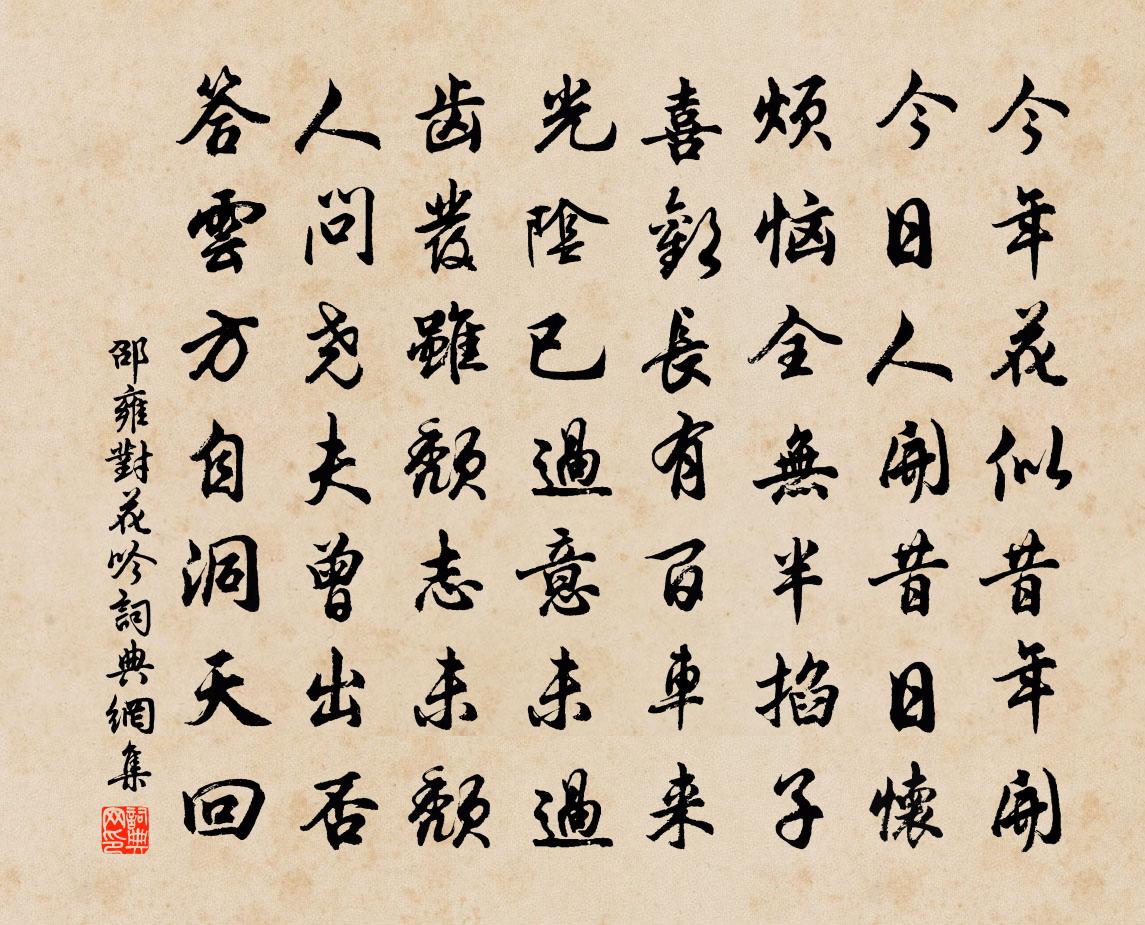 今年花似昔年開
今日人開昔日懷
煩恼全無半掐子
喜歡長有百車来
光陰已過意未過
齿發雖頽志未頽
人問尧夫曾出否
答雲方自洞天回
邵雍對花吟詞典網集
詞典网印